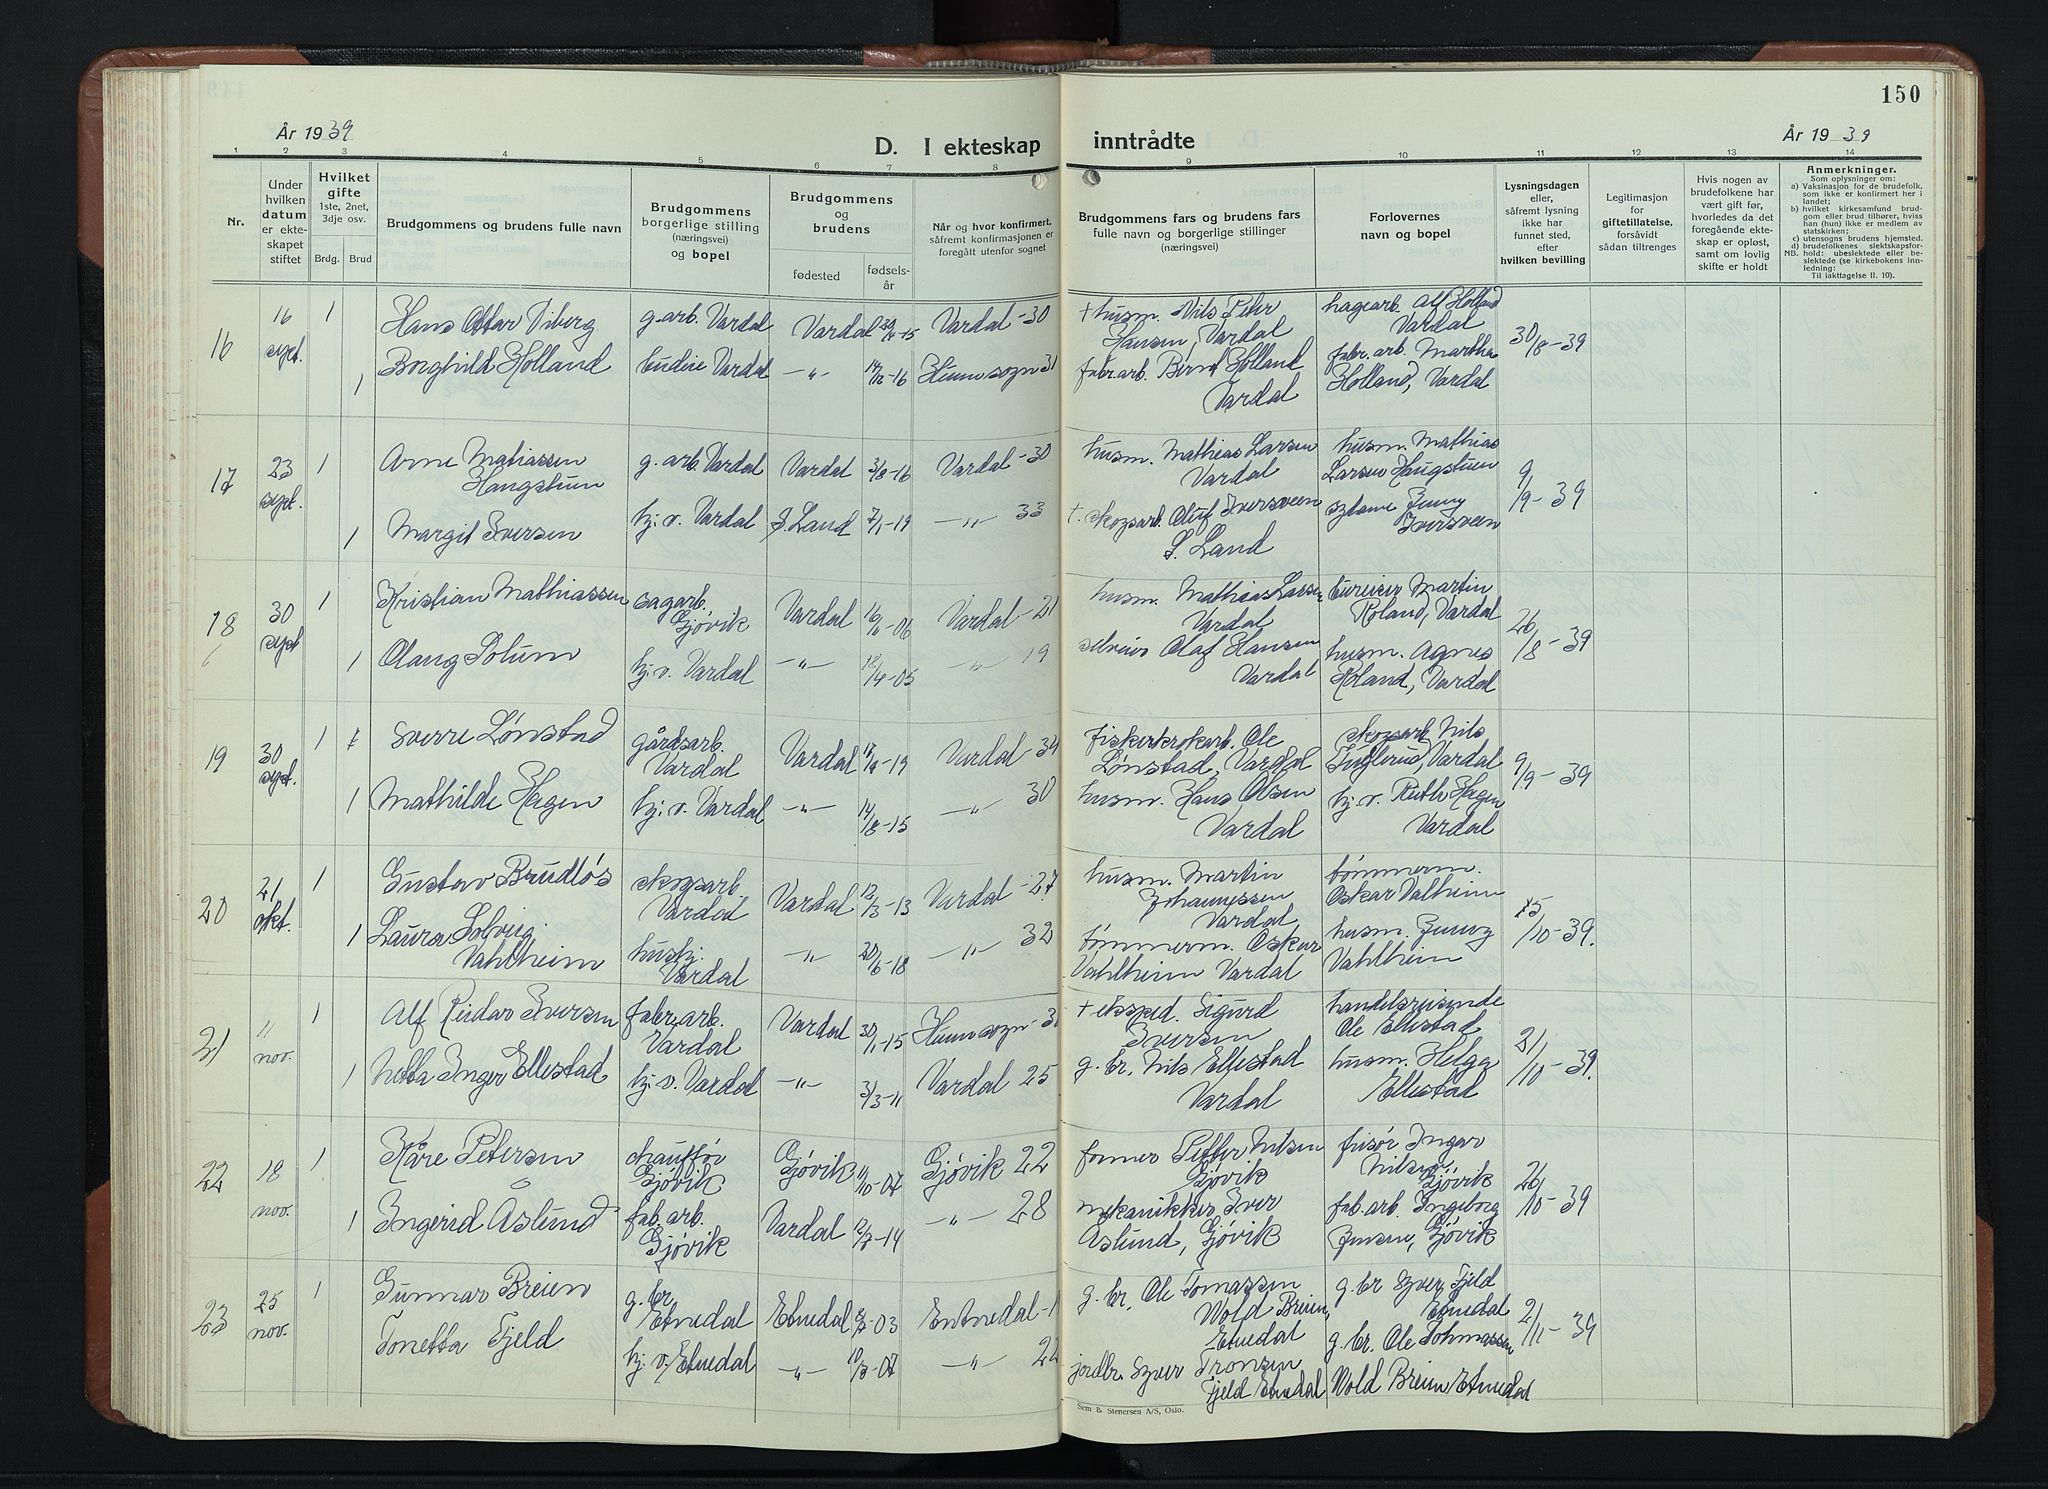 150
År 1939
D. I ekteskap inntrådte
År 1939
1 2 3 4 5 6 7 8 9 10 11 12 13 14
Nr.
Under
hvilken
datum
er ekte-
skapet
stiftet
Hvilket
gifte
1ste, 2net,
3dje osv.
Brdg. Brud
Brudgommens og brudens fulle navn
Brudgommens
borgerlige stilling
(næringsvei)
og bopel
Brudgommens
og
brudens
fødested
fødsels-
år
Når og hvor konfirmert,
såfremt konfirmasjonen er
foregått utenfor sognet
Brudgommens fars og brudens fars
fulle navn og borgerlige stillinger
(næringsvei)
Forlovernes
navn og bopel
Lysningsdagen
eller,
såfremt lysning
ikke har
funnet sted,
efter
hvilken bevilling
Legitimasjon
for
giftetillatelse,
forsåvidt
sådan tiltrenges
Hvis nogen av
brudefolkene har
vært gift før,
hvorledes da det
foregående ekte-
skap er opløst,
samt om lovlig
skifte er holdt
Anmerkninger.
Som oplysninger om:
a) Vaksinasjon for de brudefolk,
som ikke er konfirmert her i
landet;
b) hvilket kirkesamfund brud-
gom eller brud tilhører, hviss
han (hun) ikke er medlem av
statskirken;
c) utensogns brudens hjemsted.
d) brudefolkenes slektskapsfor-
NB. hold: ubeslektede eller be-
slektede (se kirkebokens inn-
ledning:
Til iakttagelse II. 10).
16
16 sept.
1
Hans Ottar Viberg
g.arb. Vardal
Vardal 30/8-15
Vardal -30
+ husm. Nils Pehr
Hansen, Vardal
hagearb. Alf Holland
Vardal
30/8-39
1
Borghild Holland
Vardal
-"- 16
Hunn sogn 31
fabr.arb. Bernt Holland
Vardal
fabr.arb. Martha
Holland, Vardal
17
23 sept.
1
Arne Mathiassen
Haugstuen
g. arb. Vardal
Vardal 3/8-16
Vardal -30
husm. Mathias Larsen
Vardal
husm. Mathias
Larsen Haugstuen
9/9-39
1
Margit Iversen
hj. v. Vardal
S. Land 7/1-19
-"- 33
+. skogsarb. Oluf Iversveen
S. Land
Jenny
Iversveen
18
30 sept
1
Kristian Mathiassen
sagarb.
Gjøvik
Vardal 16/11-06
Vardal -21
husm. Mathias Larsen
Vardal
Martin
Roland, Vardal
26/8-39
1
Olaug Solum
hj. v. Vardal
-"- 18/4-05
-"- 19
Olaf Hansen
Vardal
husm. Agnes
Roland, Vardal
19
30 sept.
1
Sverre Lønstad
gårdsarb.
Vardal
Vardal -19
Vardal -34
fiskerkrokarb. Ole
Lønstad, Vardal
skogsarb. Nils
Fuglerud, Vardal
9/9-39
1
Mathilde Hagen
hj. v. Vardal
-"- 14/8-15
-"- 30
husm. Hans Olsen
Vardal
hj. v. Ruth Hagen
Vardal
20
21 okt.
1
Gustav Brudløs
skogsarb.
Vardal
Vardal 12/3-13
Vardal -27
husm. Martin
Johannessen
Vardal
tømmerm.
Oskar Valheim
/10-39.
1
Laura Solveig
Vahlheim
hushj.
Vardal
-"- 20/6-18
-"- 32
tømmerm. Oskar
Vahlheim Vardal
husm. Jenny
Vahlheim
21
11 nov.
1
Alf Reidar Iversen
fabr.arb.
Vardal
Vardal 30/1-15
Hunn sogn -30
+ eksped. Sigurd
Iversen
handelsreisende
Ole Ellestad
21/10-39.
1
Inger Ellestad
hj. v. Vardal
-"- 3/3-11
Vardal 25
g. br. Nils Ellestad
Vardal
husm. Helga
Ellestad
22
18 nov.
1
Kåre Petersen
chauffør
Gjøvik
Gjøvik 11/10-07
Gjøvik 22
former Petter Nilsen
Gjøvik
frisør Ingar
Nilsen
Gjøvik
26/10-39
1
Ingerid Aslund
fab. arb.
Gjøvik
Vardal 12/7-14
-"- 28
mekanikker Iver
Aslund, Gjøvik
fab. arb. Ingeborg
Jensen, Gjøvik
23
25 nov.
1
Gunnar Breien
g. br.
Etnedal
Etnedal -03
Entnedal -1
g. br. Ole Tomassen
Wold Breien,
Etnedal
g. br Syver Fjeld
Etnedal
2/11-39
Tonetta Fjeld
hj. v. Etnedal
-"- 10/3-07
-"- 22
jordbr. Syver Tronsen
Fjeld Etnedal
g. br. Ole Tohmassen
Wold Breien Etnedal
Sem & Stenersen A/S, Oslo.